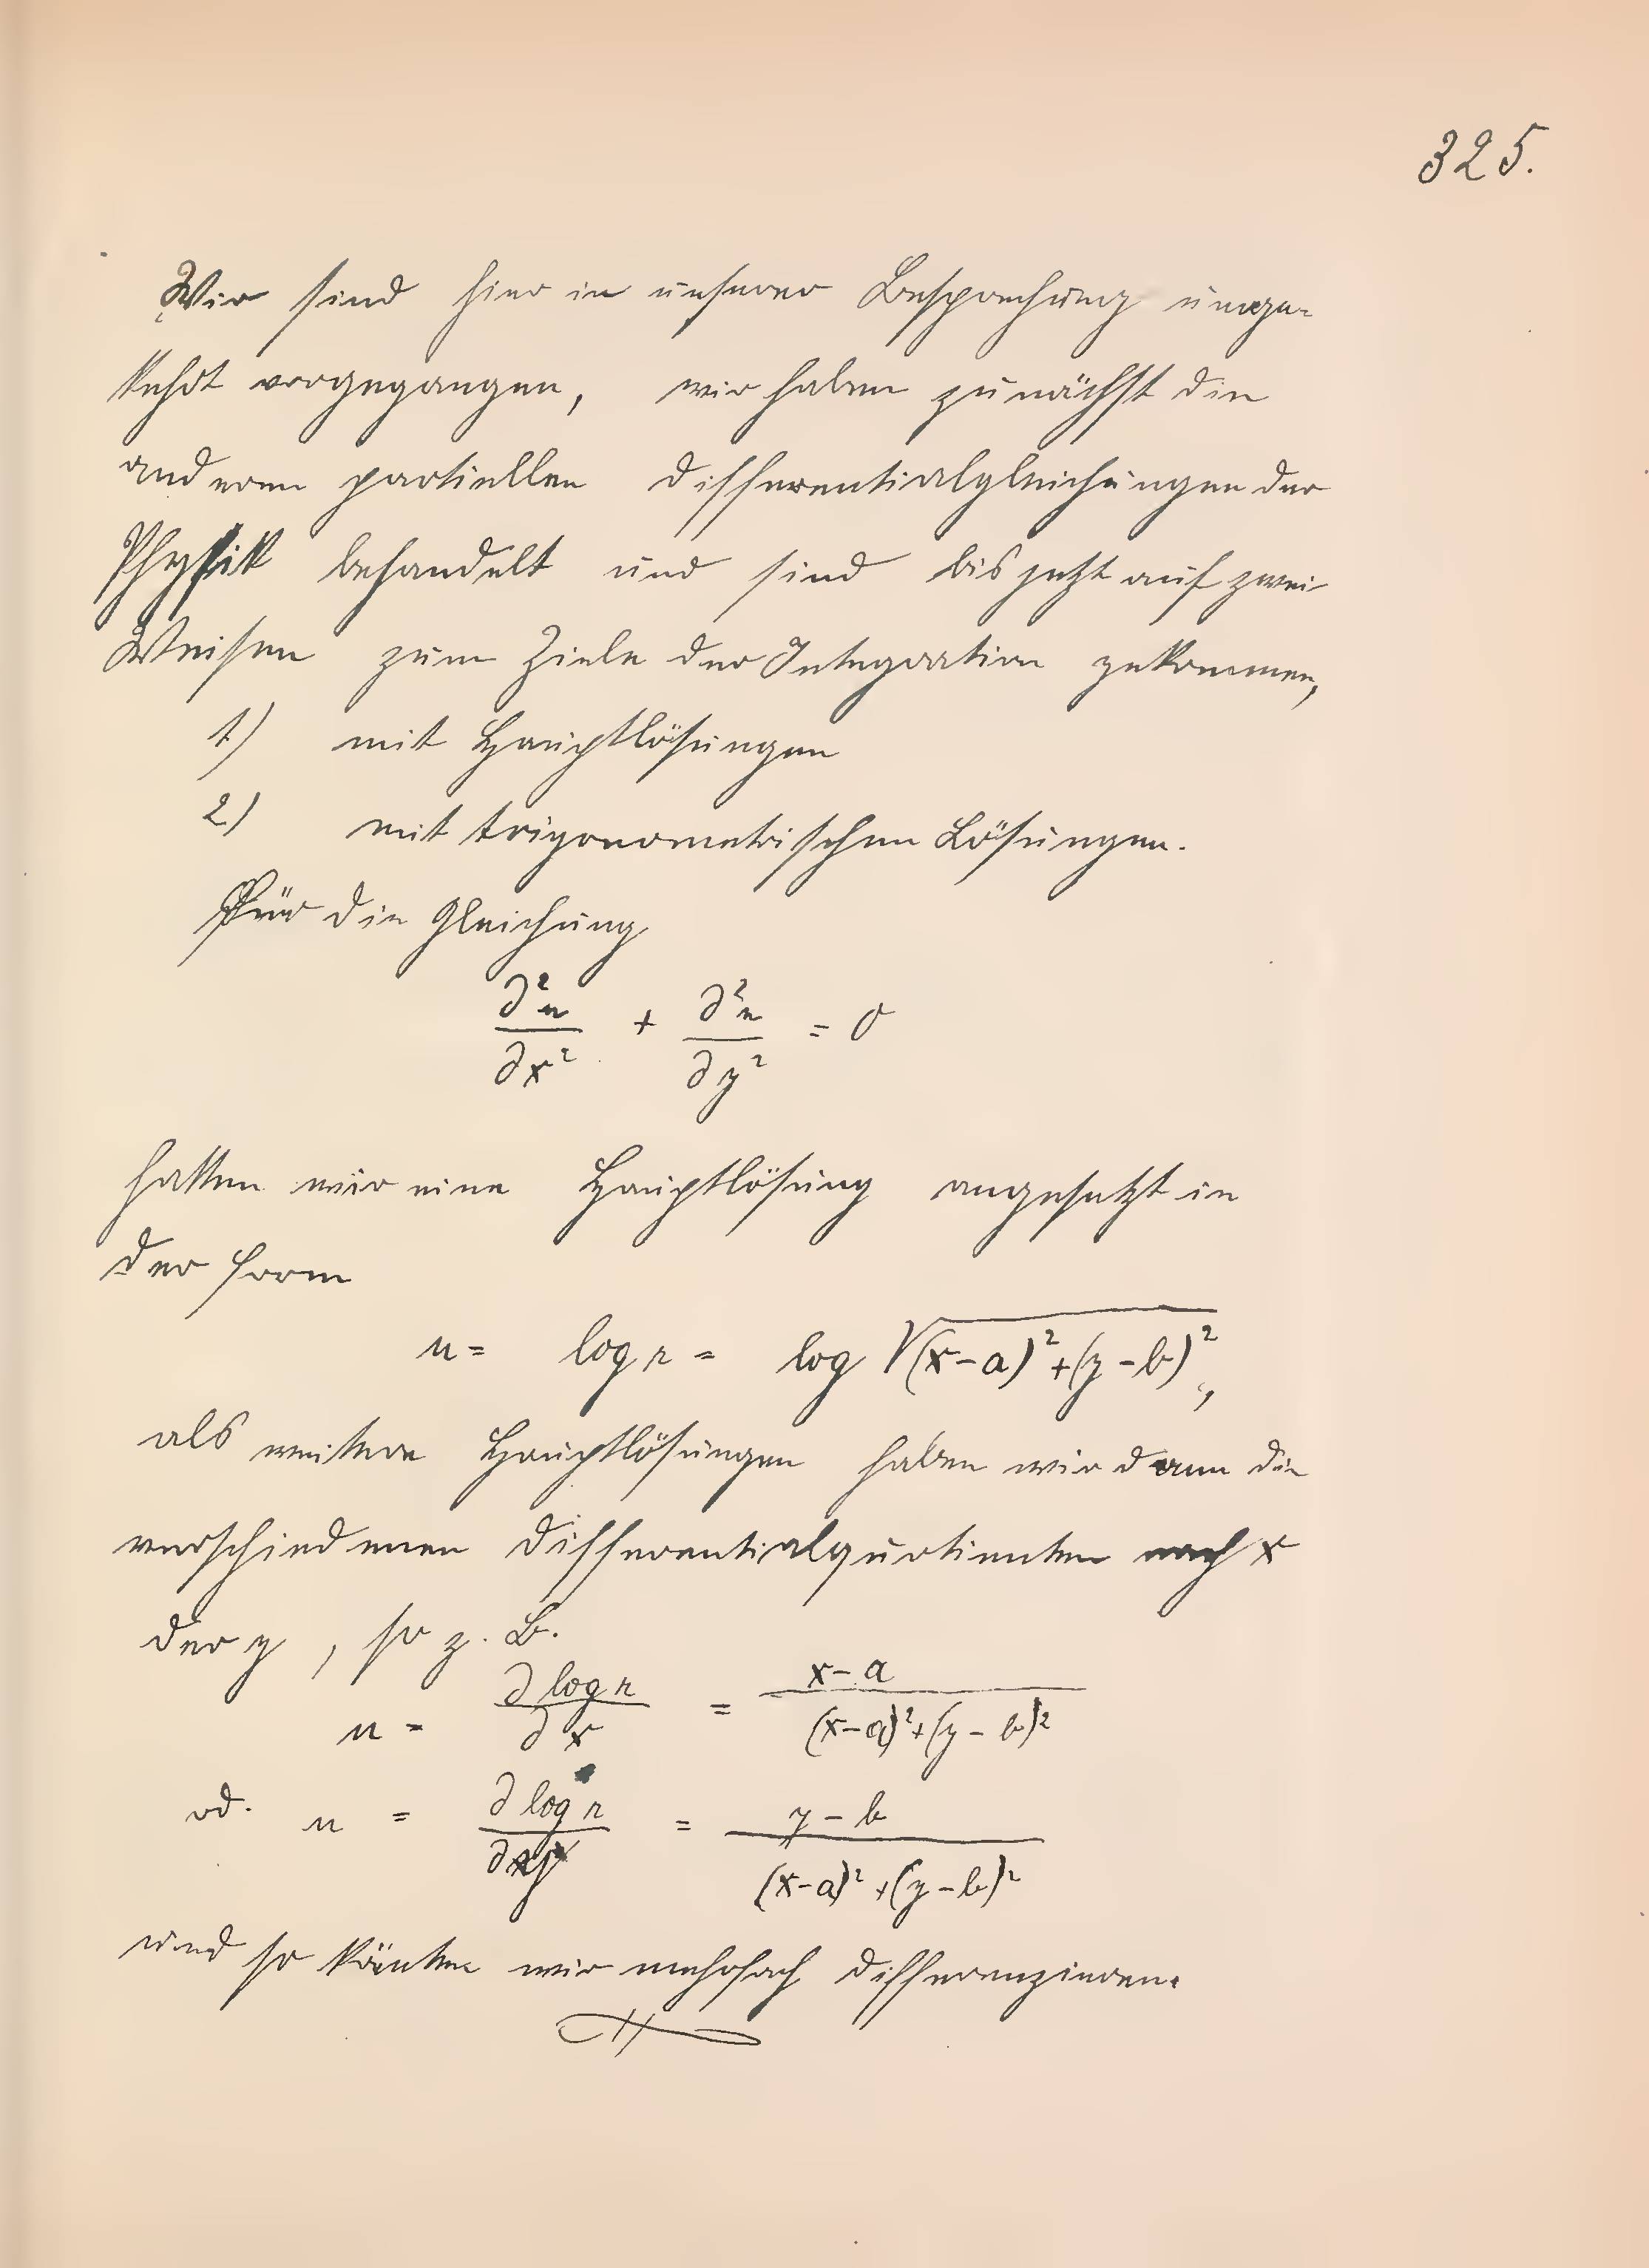 325.
Wir sind hier in unserer Besprechung umge-
kehrt vorgegangen, wir haben zunächst die
anderen partiellen Differentialgleichungen der
Physik behandelt und sind bis jetzt auf zwei
Weisen zum Ziele der Integration gekommen,
1) mit Hauptlösungen
2) mit trigonometrischen Lösungen.
Für die Gleichung
∂²u/∂x² + ∂²u/∂y² = 0
hatten wir eine Hauptlösung angesetzt in
der Form
u = log r = log √((x-a)²+(y-b)²),
als weitere Hauptlösungen haben wir dann die
verschiedenen Differentialquotienten nach x
der y, so z. B.
u = ∂ log r/∂x = (x-a)/((x-a)²+(y-b)²)
od. u = ∂ log r/∂y = (y-b)/((x-a)²+(y-b)²)
und so könten wir mehrfach differenzieren.